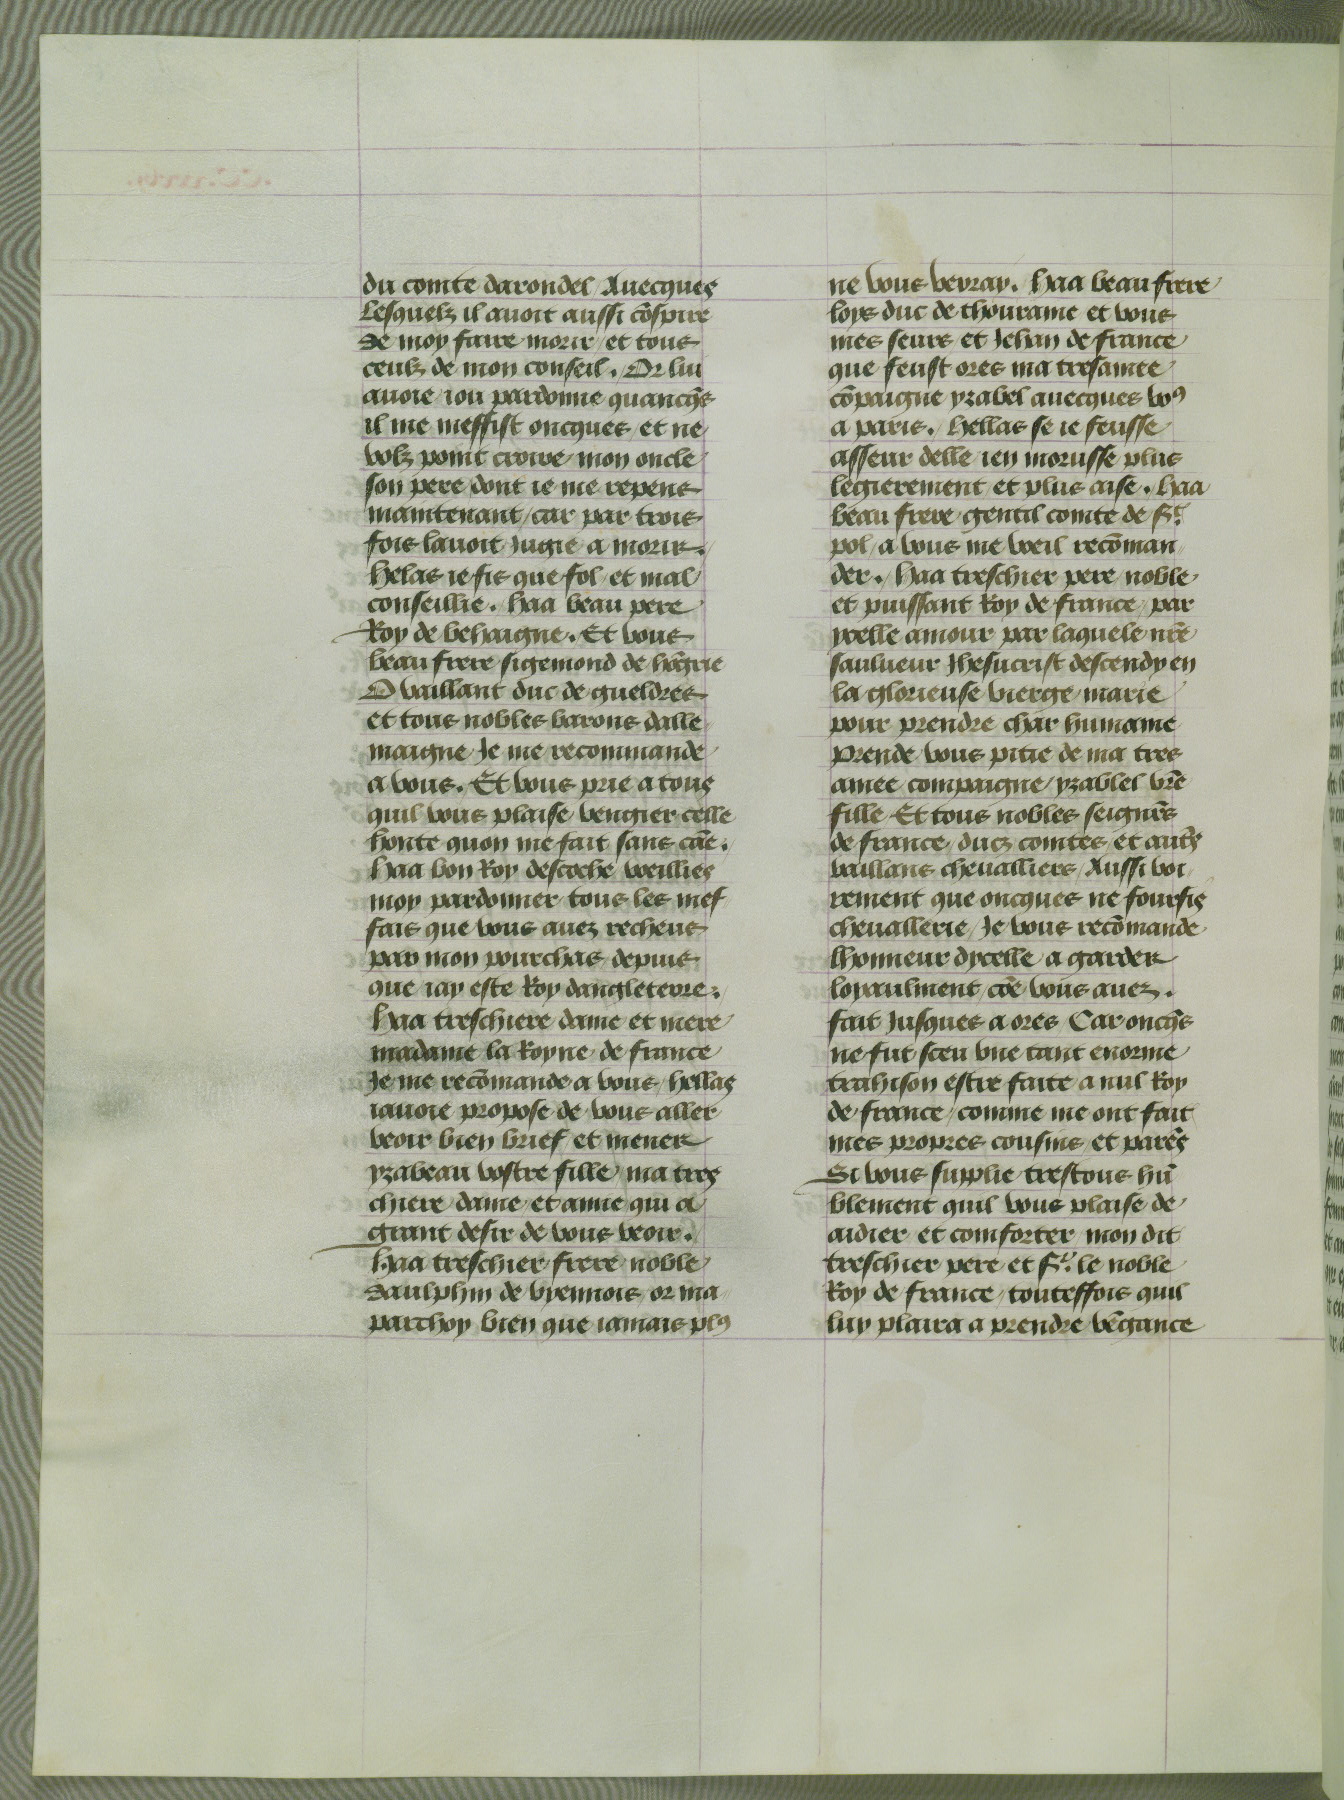 du comte darondel Auecques
lesquelz il auoit aussi cōspire
de moy faire morir / et tous
ceulz de mon conseil. Or lui
auoie iou pardonne quancq̄s
il me meffist oncques / et ne
volz point croire mon oncle
son pere dont ie me repens
maintenant / car par trois
fois lauoit Jugie a morir.
helas ie fis que fol et mal
conseillie. haa beau pere
Roy de behaigne. Et vous
beau frere sigemond de hōgrie
O vaillant duc de gueldres
et tous nobles barons dalle
maigne Je me recommande
a vous. Et vous prie a tous
quil vous plaise vengier celle
honte quon me fait sans cāe.
haa bon Roy descoche weillies
moy pardonner tous les mef
fais que vous auez recheus
par mon pourchas depuis
que iay este Roy dangleterre.
haa treschiere dame et mere
madame la Royne de france
Je me recōmande a vous / hellas
iauoie propose de vous aller
veoir bien brief et mener
yzabeau vostre fille ma tres
chiere dame et amie qui a
grant desir de vous veoir.
haa treschier frere noble
daulphin de vyennois or ma
parchoy bien que iamais plꝰ
ne vous verray. haa beau frere
loys duc de thouraine et vous
mes seurs et Jehan de france
que feust ores ma tresamee
cōpaigne yzabel auecques voꝰ
a paris. hellas se ie feusse
asseur delle ien morusse plus
legierement et plus aise. haa
beau frere gentil comte de St
pol / a vous me weil recōman
der. haa treschier pere noble
et puissant Roy de france / par
ycelle amour par laquele nr̄e
saulueur Jhesucrist descendy en
la glorieuse vierge marie
pour prendre char humaine
prende vous pitie de ma tres
amee compaigne / yzablel vr̄e
fille Et tous nobles seignēs
de france / ducz comtes et autr̄s
vaillans cheualliers / Aussi voi
rement que oncques ne fourfis
cheuallerie / Je vous recōmande
lhonneur dycelle a garder
loyaulment cōe vous auez.
fait Jusques a ores Car oncq̄s
ne fut sceu vne tant enorme
trahison estre faite a nul Roy
de france / comme me ont fait
mes propres cousins et parēs
Si vous supplie trestous hū
blement quil vous plaise de
aidier et comforter mon dit
treschier pere et Sr. le noble
Roy de france / touteffois quil
luy plaira a prendre vēgance